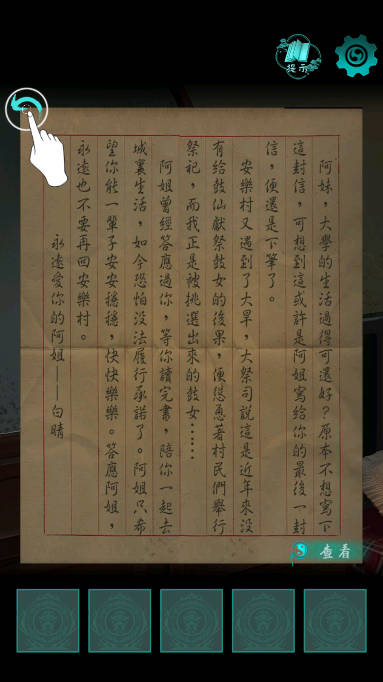 提示
阿妹，大學的生活過得可還好？原本不想寫下
這封信，可想到這或許是阿姐寫給你的最後一封
信，便還是下筆了。
安樂村又遇到了大旱，大祭司說這是近年來沒
有給鼓仙獻祭鼓女的後果，便慫恿著村民們舉行
祭祀，而我正是被挑選出來的鼓女……
阿姐曾經答應過你，等你讀完書，陪你一起去
城裏生活，如今恐怕沒法履行承諾了。阿姐只希
望你能一輩子安安穩穩，快快樂樂。答應阿姐，
永遠也不要再回安樂村。
永遠愛你的阿姐——白晴
查看